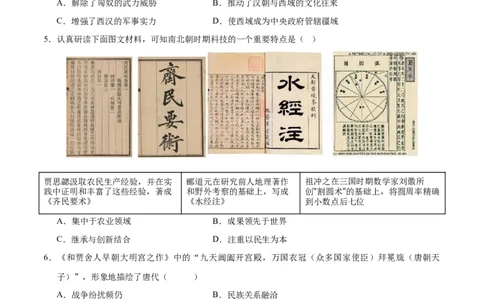 A．解除了匈奴的武力威胁 B．推动了汉朝与西域的文化往来
C．增强了西汉的军事实力 D．使西域成为中央政府管辖疆域
5．认真研读下面图文材料，可知南北朝时期科技的一个重要特点是（ ）
齊民要術
水經注
贾思勰汲取农民生产经验，并在实践中证明和丰富了这些经验，著成《齐民要术》
郦道元在研究前人地理著作和野外考察的基础上，写成《水经注》
祖冲之在三国时期数学家刘徽所创"割圆术"的基础上，将圆周率精确到小数点后七位
A．集中于农业领域 B．成果领先于世界
C．继承与创新结合 D．注重以民生为本
6．《和贾舍人早朝大明宫之作》中的“九天阊阖开宫殿，万国衣冠（众多国家使臣）拜冕旒（唐朝天
子）”，形象地描绘了唐代（ ）
A．战争纷扰频仍 B．民族关系融洽